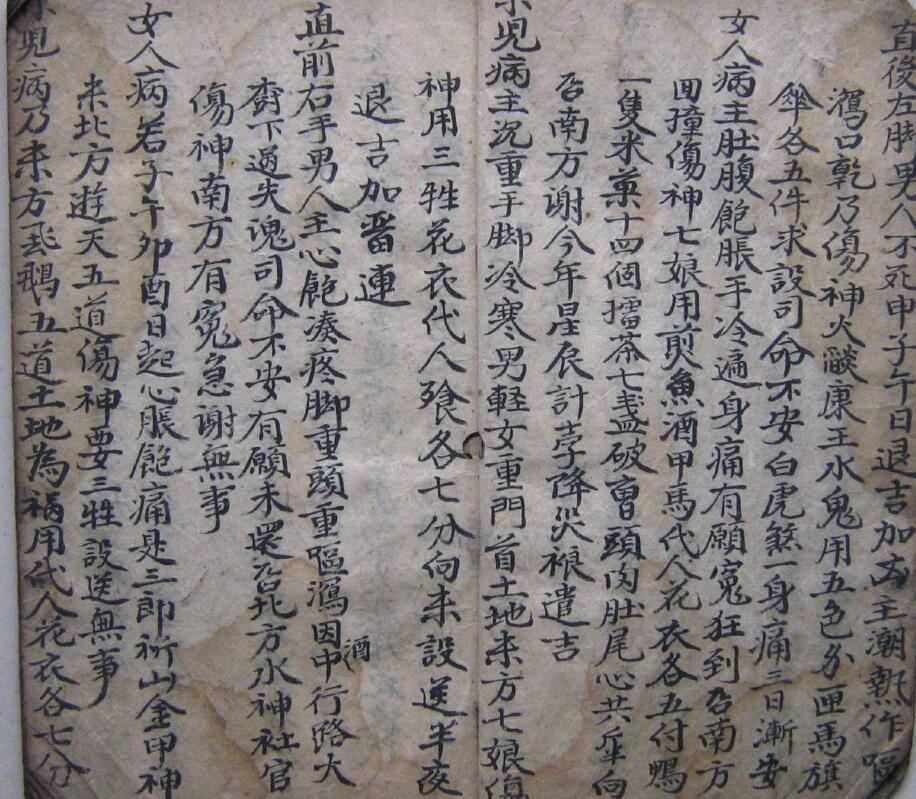 直後左脚男人不死申子午日退吉加凶主潮熱作嘔
瀉口乾乃傷神火燄康王水鬼用五色分匣馬旗
傘各五件求設司命不安白虎煞一身痛三日漸安
女人病主肚腹飽脹手冷遍身痛有願寃狂到呂南方
回撞傷神七娘用煎魚酒甲馬代人花衣各五付鴨
一隻米菓十四個擂茶七盞破曹頭肉肚尾心共年向
呂南方謝今年星辰計孛降災禳遣吉
小兒病主沉重手脚冷寒男軽女重門首土地未方七娘傷
神用三牲花衣代人飱各七分向未設送半夜
退吉加畱連
直前右手男人主心飽凑疼脚重頭重嘔瀉因中酒行路大
樹下過失魂司命不安有願未還呂北方水神社官
傷神南方有寃急謝無事
女人病若子午卯酉日起心脹飽痛是三郎祈山金甲神
未北方遊天五道傷神要三牲設送無事
小兒病乃未方飛鵝五道土地為禍用代人花衣各七分